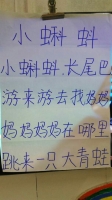 小蝌蚪
小蝌蚪.长尾巴
游来游去找妈妈
妈妈妈妈在哪里
跳来一只大青蛙